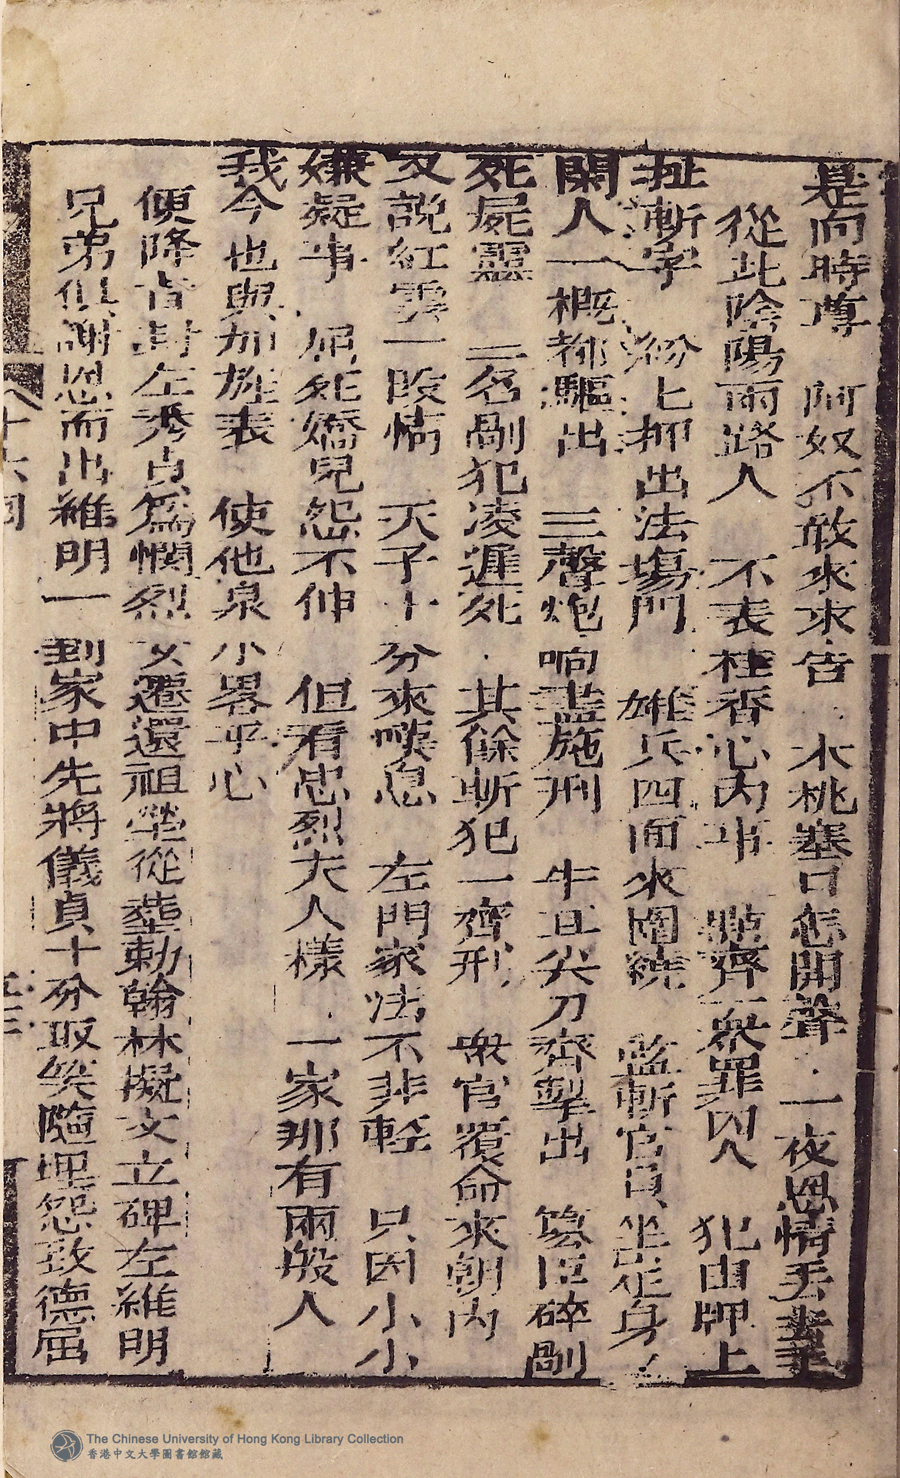 是向時尊　阿奴不敢來求告　木桃塞口怎開聲　一夜恩情丢
從此陰陽兩路人　不表桂香心内事　點齊衆罪囚人　犯由牌上
扯斬字　紛上押出法塲門　雄兵四面來圍繞　監斬官員坐定身
閑人一概都驅出　三聲炮响盡施刑　牛耳尖刀齊掣出　臣碎剮
死屍靈　二名剮犯凌遲死　其餘斬犯一齊刑　衆官覆命來朝内
又說紅雲一段情　天子十分來嘆息　左門家法不非輕　只因小小
嫌疑事　屈死嬌兒怨不伸　但看忠烈夫人樣　一家那有兩般人
我今也與加旌表　使他泉小畧平心
便降旨封左秀貞爲憫烈女遷還祖塋從塟勅翰林擬文立碑左維明
兄弟俱謝恩而出維明一到家中先將儀貞十分取笑隨埋怨致德屈
八十六囘
The Chinese University of Hong Kong Library Collection
香港中文大學圖書館館藏